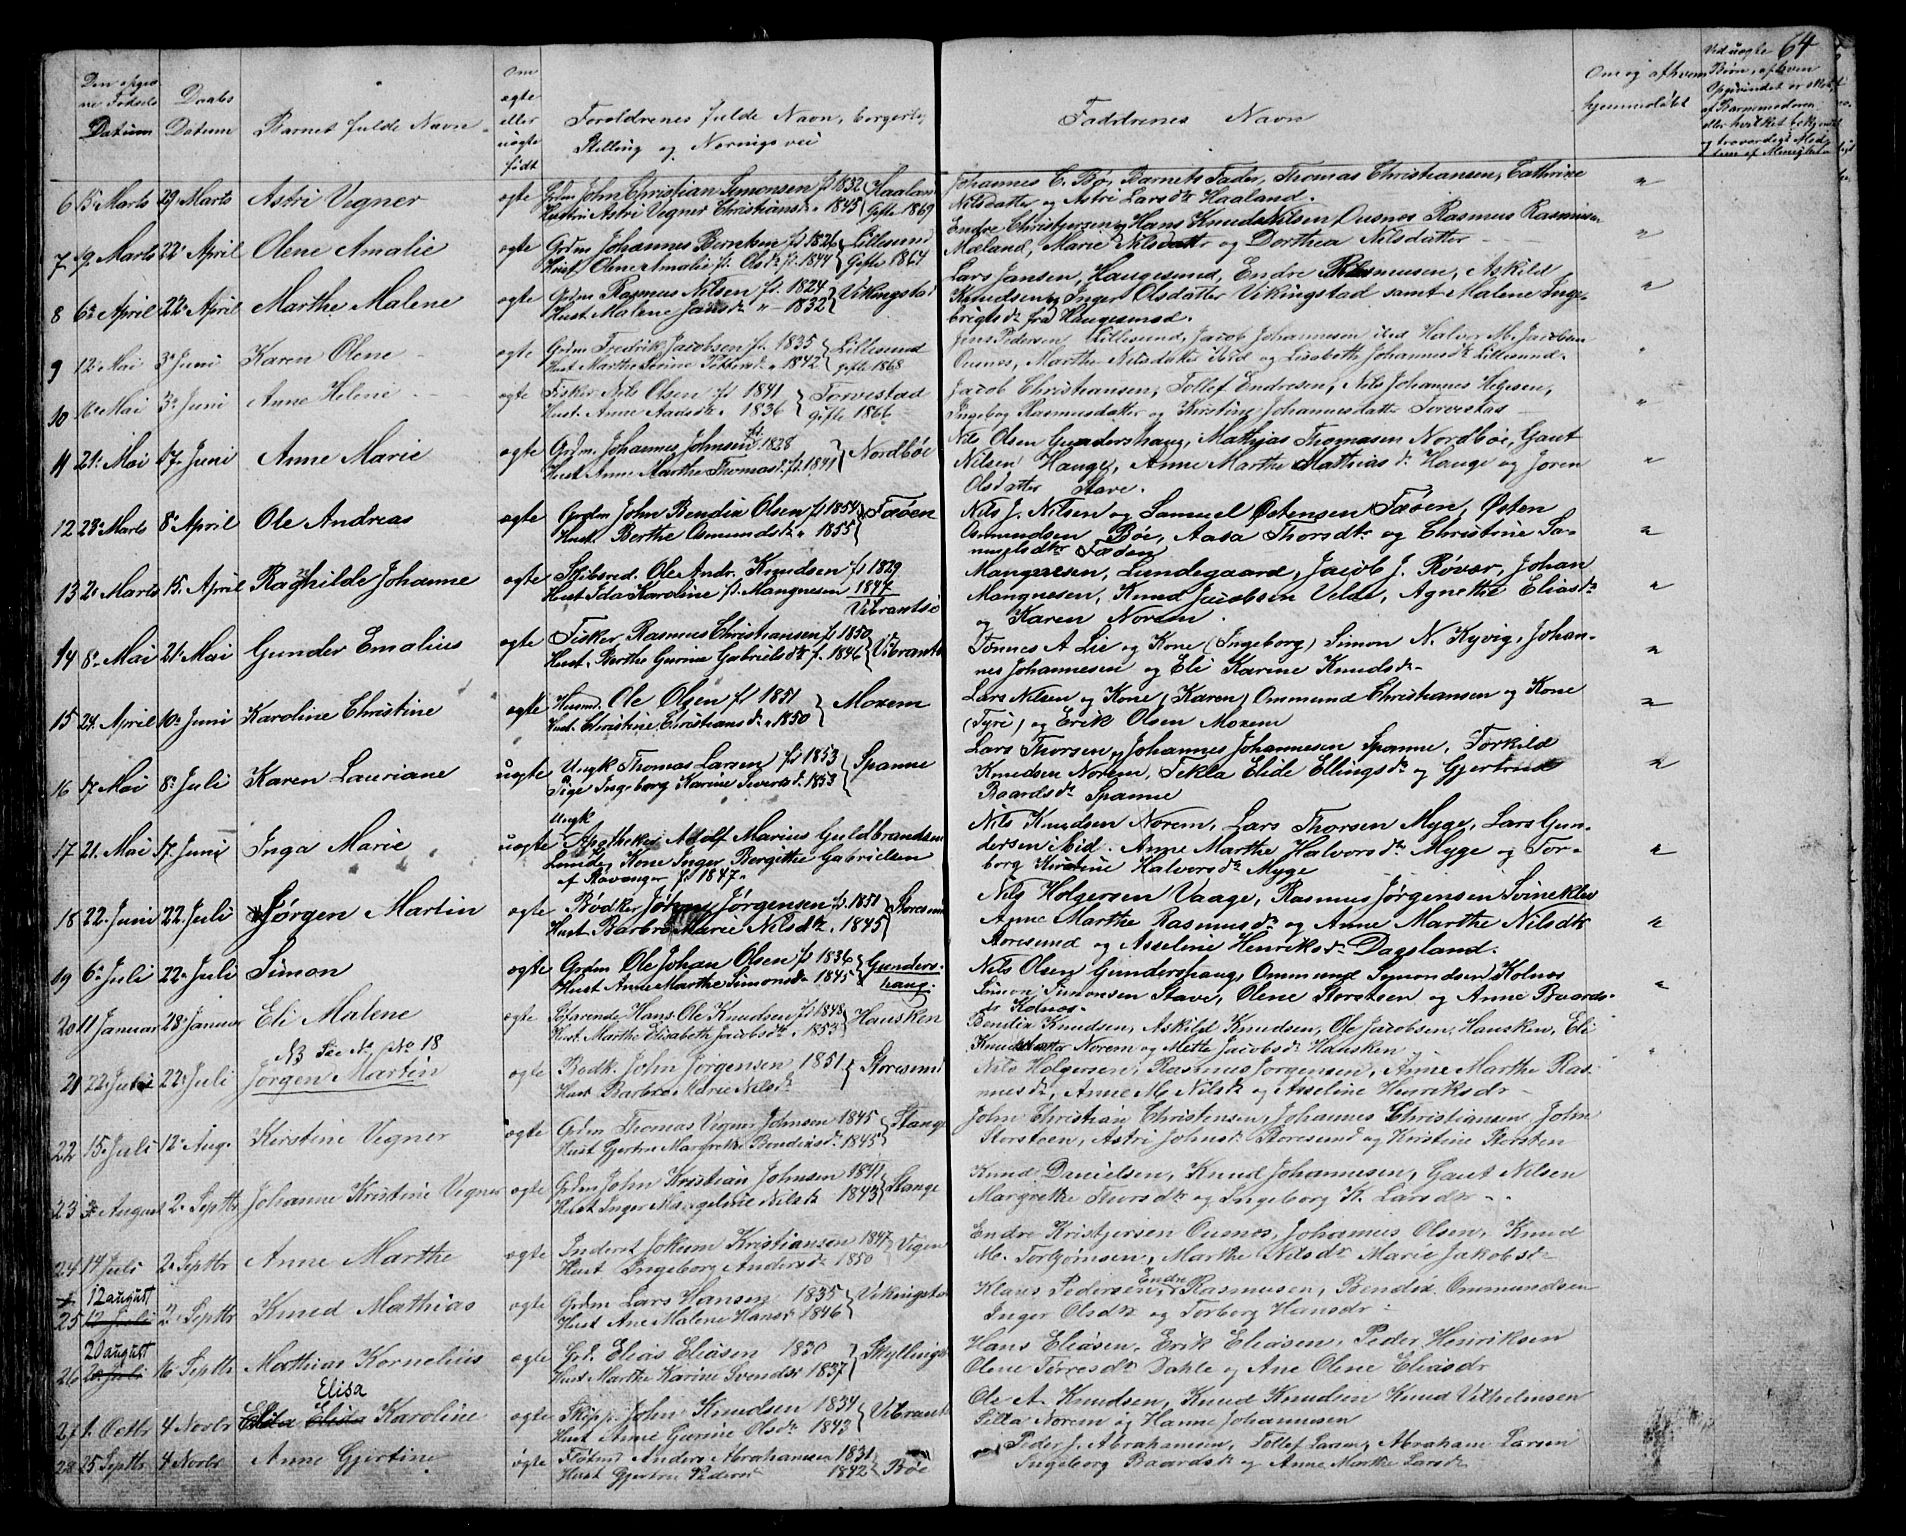 64
Den opgivne Fødsels Datum
Daabs Datum
Barnets fulde Navn
Om ægte eller uægte født
Forældrenes fulde Navn, borgerlig
Stilling og Nærings vei
Faddrenes Navn
Om og af hvem
hjemmedøbt
Ved uægte
Børn, af hvem
6 15 Marts 29 Marts Astri Vegner ægte Grdm John Christian Simonsen f 1832 Haaland
Hustru Astri Vegner Christiansd. 1845 Gifte 1869
Johannes C. Bø, Barnets Fader, Thomas Christiansen, Cathrine
Nilsdatter og Astri Larsdtr Haaland.
7 9 Marts 22 April Olene Amalie ægte Grdm Johannes Berntsen f 1826 Lillesund
Hust Olene Amalie f. Olsdr f. 1844 Gifte 1864
Endre Christjersen og Hans Knud Nilsen Ousnes Rasmus Rasmussen
Mæland, Marie Nilsdattr og Dorthea Nilsdatter
8 6 April 22 April Marthe Malene ægte Grdm Rasmus Nilsen f. 1824 Vikingstad
Hust Malene Jansdr " 1832
Lars Jansen, Haugesund, Endre Rasmusen, Askild
Knudsen og Inger Olsdatter Vikingstad samt Malene Inge-
brigtsdr fra Haugesund.
9 12 Mai 3 Juni Karen Olene ægte Grdm Fredrik Jacobsen f. 1835 Lillesund
Hust Marthe Serine Pettersd. 1842 gifte 1868
Jens Pedersen Lillesund, Jacob Johannesen ibid Halvor M. Jacobsen
Ousnes, Marthe Nilsdatter ibid og Lisabeth Johannesdr Lillesund.
10 16 Mai 3 Juni Anne Helene ægte Fisker Nils Olsen f 1841 Torvestad
Hust. Anne Aadesdr. 1836 gifte 1866
Jacob Christiansen, Tollef Endresen, Nils Johannes Helgesen,
Ingebog Rasmusdatter og Kirstine Johannesdatter Torvestad
11 21 Mai 17 Juni Anne Marie ægte Grdm. Johannes Johnsen f. 1828 Nordbøe
Hust Anne Marthe Thomasd. f. 1841
Nils Olsen Gundershaug, Mathias Thomasen Nordbøe, Gaut
Nilsen Hauge, Anne Marthe Mathias dr Hauge og Joren
Olsdatter Stave.
12 23 Marts 8 April Ole Andreas ægte Grdm John Bendix Olsen f 1854 Fæøen
Hust. Berthe Osmundsdr. 1855
Nils J. Nilsen og Samuel Østensen Fæøen, Østen
Osmundsen Bøe, Aasa Thorsdr og Christine Sa-
muelsdtr Fæøen
13 2 Marts 15 April Raghilde Johanne ægte Skibsred. Ole Andr. Knudsen f 1829
Hust Ida Karoline f. Mangnesen 1847
Vibrantsø
Mangnesen, Lundegaard, Jacob J. Røvær, Johan
Mangnesen, Knud Jacobsen Velde, Agnethe Eliasdr
og Karen Norem.
14 8 Mai 21 Mai Gunder Emalius ægte Fisker Rasmus Christiansen f 1850 Vibrants
Hust. Berthe Gurine Gabrielsdtr f. 1846
Tønnes A Lie og Kone (Ingeborg) Simon N. Kyvig, Johan-
nes Johannesen og Eli Karine Knudsdr
15 24 April 10 Juni Karoline Christine ægte Husmd. Ole Olsen f 1851 Moxem
Hust. Christine Christiansdr. 1850
Lars Nilsen og Kone (Karen) Ommund Christiansen og Kone
(Tyri) og Erik Olsen Moxem
16 17 Mai 8 Juli Karen Lauriane uægte Ungk Thomas Larsen f 1853 Spanne
Pige Ingeborg Karine Sivertsd. 1853
Lars Thorsen og Johannes Johannesen Spanne, Torkild
Knudsen Norem, Tekla Elide Ellingsdr og Gjertrud
Baardsdr Spanne
17 21 Mai 17 Juni Inga Marie uægte Ungk
Apotheker Adolf Marius Guldbrandsen
Lund og Kone Inger Bergithe Gabrielsen
af Stavanger f 1847.
Nils Knudsen Norem, Lars Thorsen Myge, Lars Gun-
dersen ibid. Anne Marthe Halvorsdr Myge og Tor-
borg Kirstine Halvorsdr Myge
18 22 Juni 22 Juli Jørgen Martin ægte Bødker John Jørgensen f. 1851 Storesund
Hust. Barbro Marie Nilsdtr. 1845
Nils Holgersen Vaage, Rasmus Jørgensen Svinekler
Anne Marthe Rasmusdr og Anne Marthe Nilsdtr
Storesund og Asseline Henriksdr Dagsland.
19 6 Juli 22 Juli Simon ægte Grdm Ole Johan Olsen f 1836 Gunders-
Hust Anne Marthe Simonsdr 1845 haug.
Nils Olsen Gundershaug, Ommund Symondsen Kolnes
Simon Simonsen Stave, Olene Storsteen og Anne Baards-
dr Kolnes.
20 11 Januar 28 Januar Eli Malene ægte Søfarende Hans Ole Knudsen f 1848 Hausken
Hust. Marthe Elisabeth Jacobsdtr. 1853
Bendix Knudsen, Askild Knudsen, Ole Jacobsen, Hausken, Eli
Knudsdatter Norem og Mette Jacobsdr Hausken
NB See No 18
21 22 Juli 22 Juli Jørgen Martin ægte Bødk. John Jørgensen 1851 Storesund
Hust Barbro Marie Nilsdr
Nils Holgersen, Rasmus Jørgensen, Anne Marthe Ras-
musdr, Anne M. Nilsdr og Asseline Henriksdr
22 15 Juli 12 Aug. Kirstine Vegner ægte Grdm Thomas Vegner Johnsen 1845 Stange
Hust Gjertru Margrethe Bendixsdr 1845
John Christian Christensen, Johannes Christiansen, John
Storsteen, Astri Johnsdr Storesund og Kristine Storsten
23 3 August 2 Septbr Johanne Kristine Vegner ægte Grdm John Kristian Johnsen 1841 Stange
Hust Inger Mangeline Nilsdr 1843
Knud Danielsen, Knud Johannesen, Gaut Nilsen
Margrethe Thorsdtr og Ingeborg K. Larsdtr
24 14 Juli 2 Septbr Anne Marthe ægte Inderst Jokum Kristiansen 1847 Vigen
Hust Ingeborg Andersdr 1850
Endre Kristjersen Ousnes, Johannes Olsen, Knud
M. Torbjørnsen, Marthe Nilsdtr Marie Jakobsdr
12 august
25 12 Juli 2 Septbr Knud Mathias ægte Grdm Lars Hansen 1835 Vikingstad
Hust Ane Malene Hansdr 1846
Klaus Pedersen, Endre Rasmusen, Bendix Ommundsen
Inger Olsdtr og Torberg Hansdr
20 august
26 20 Juli 16 Septbr Mathias Kornelius ægte Grd. Elias Eliasen 1830 Skyllings
Hust Marthe Karine Svendsdr 1837
Hans Eliasen, Erik Eliasen, Peder Henriksen
Olene Torresdr Dahle og Ane Olene Eliasdr
Elisa
27 1 Octbr 4 Novbr Elisa Karoline ægte Skipp. John Knudsen 1834 Vibrants
Hust Anne Gurine Olsdr 1843
Ole A. Knudsen, Knud Knudsen Knud Vilhelmsen
Silla Norem og Hanne Johannesen
28 25 Septbr 4 Novbr Anne Gjertine ægte Fløtmd Anders Abrahamsen 1831 Bøe
Hust Gjertru Pedersdr 1842
Peder J. Abrahamsen, Tollef Larsen, Abraham Larsen
Ingeborg Baardsdr og Anne Marthe Larsdr